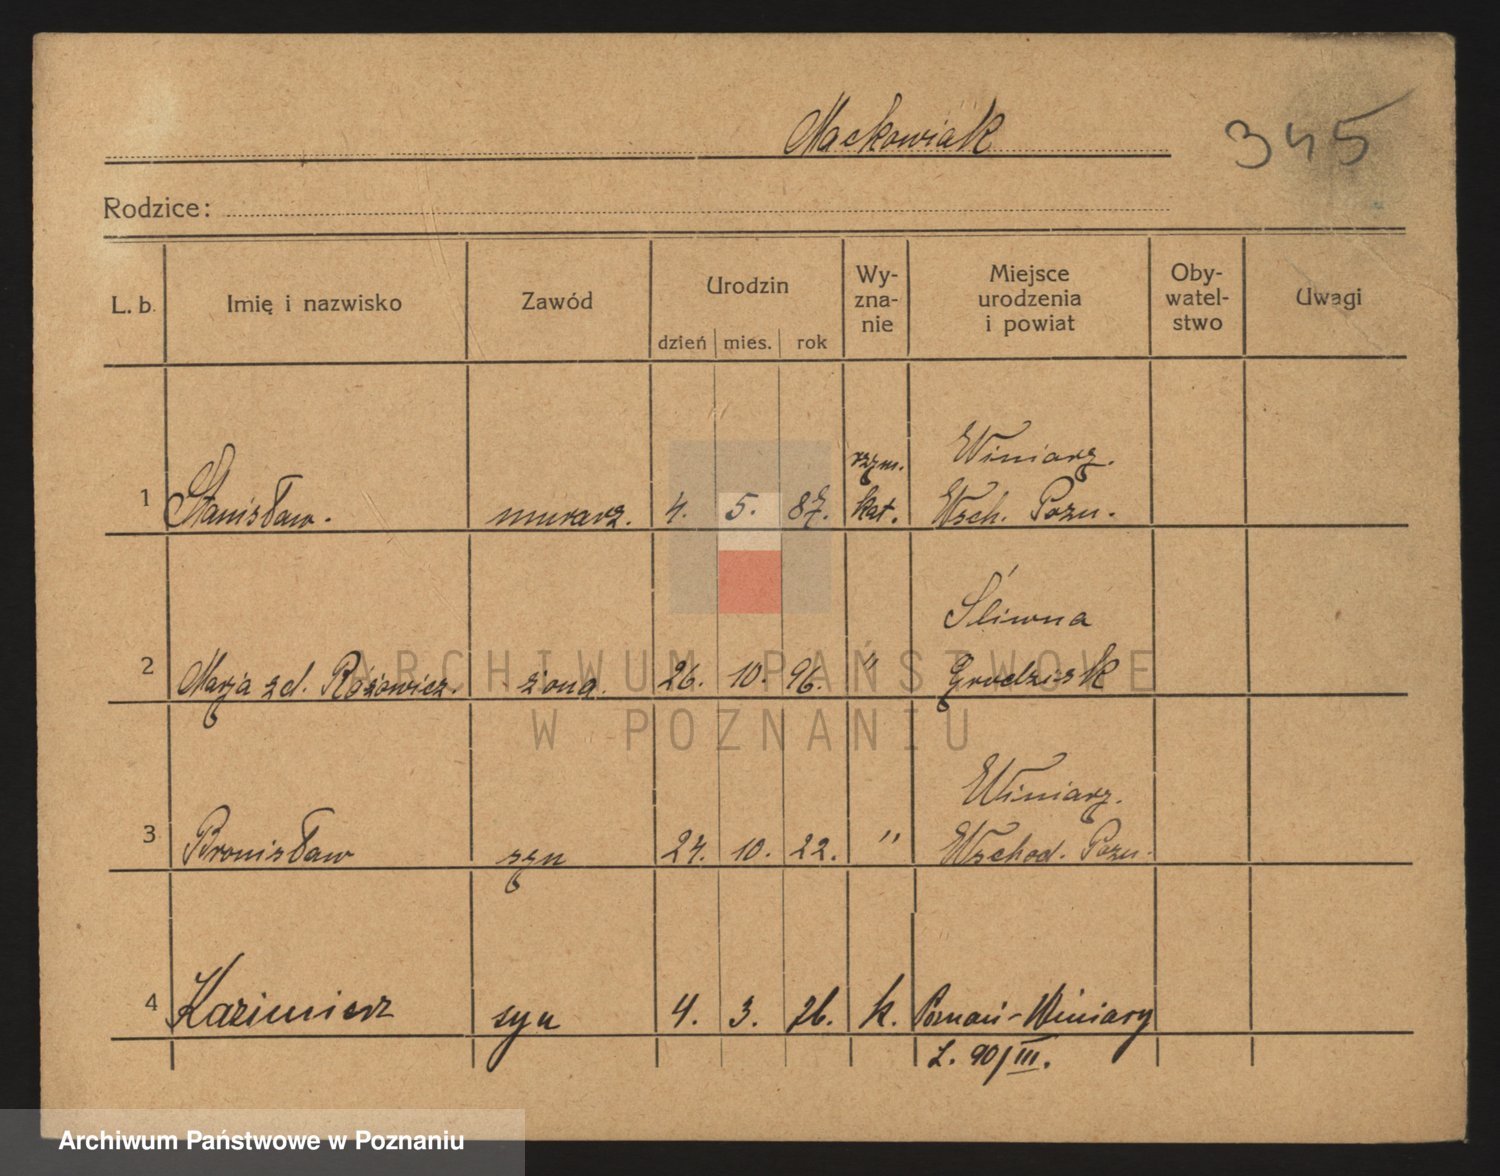 Mackowiak
345
Rodzice:
L. b. Imię i nazwisko Zawód Urodzin Wy-zna-nie Miejsce urodzenia i powiat Oby-watel-stwo Uwagi
dzień mies. rok
rzym. Winiary.
1 Stanisław. murarz. 4. 5. 87. kat. Wsch. Pozn.
Śliwna
2 Marja zd. Różowicz. żona. 26. 10. 96. " Grodzisk
ARCHIWUM PAŃSTWOWE
W POZNANIU
Winiary.
3 Bronisław syn 24. 10. 22. " Wschod. Pozn.
4 Kazimierz syn 4. 3. 26. k. Poznań-Winiary
L. 90/III.
Archiwum Państwowe w Poznaniu